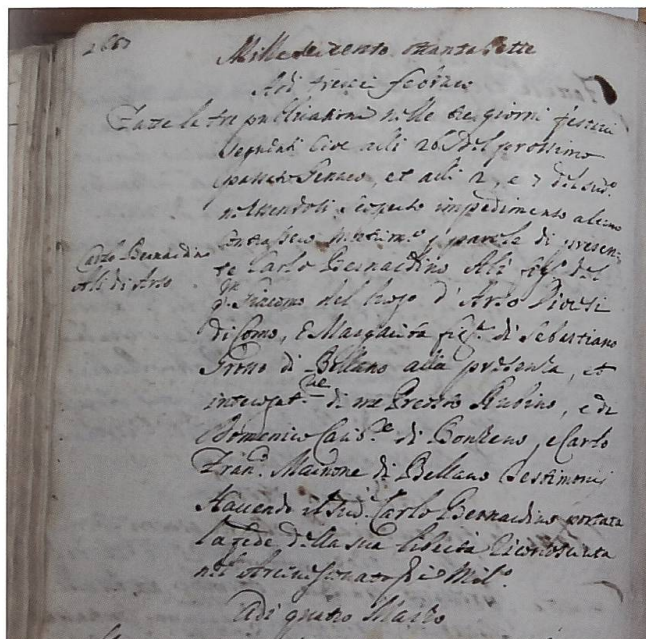 Mille sei cento ottanta sette
Adi tredici febraro
Fatte le tre publicationi nelle tre giorni festivi
seguenti cioè alli 26 del prossimo
passato Genaro, et alli 2, e 7 del sud.º
non essendosi scoperto impedimento alcuno
contrasse Matrim.º p parole di presen
te Carlo Bernardino Ali fig.º del
q.m Giacomo del loco d'Arso Diocesi
di Como, E Margarita fig.ª di Sebastiano
Grosso di Bellano alla presenza, et
interogat.ne di me Prevosto Rubino, e di
Domenico di Bonzeno, e Carlo
Fran.º Mainone di Bellano testimonii
Havendo il sud.º Carlo Bernardino portata
la fede della sua libertà riconosciuta
nel Arcivescovato di Mil.º
Adi quatro Marzo
Carlo Bernardino
Ali di Arso